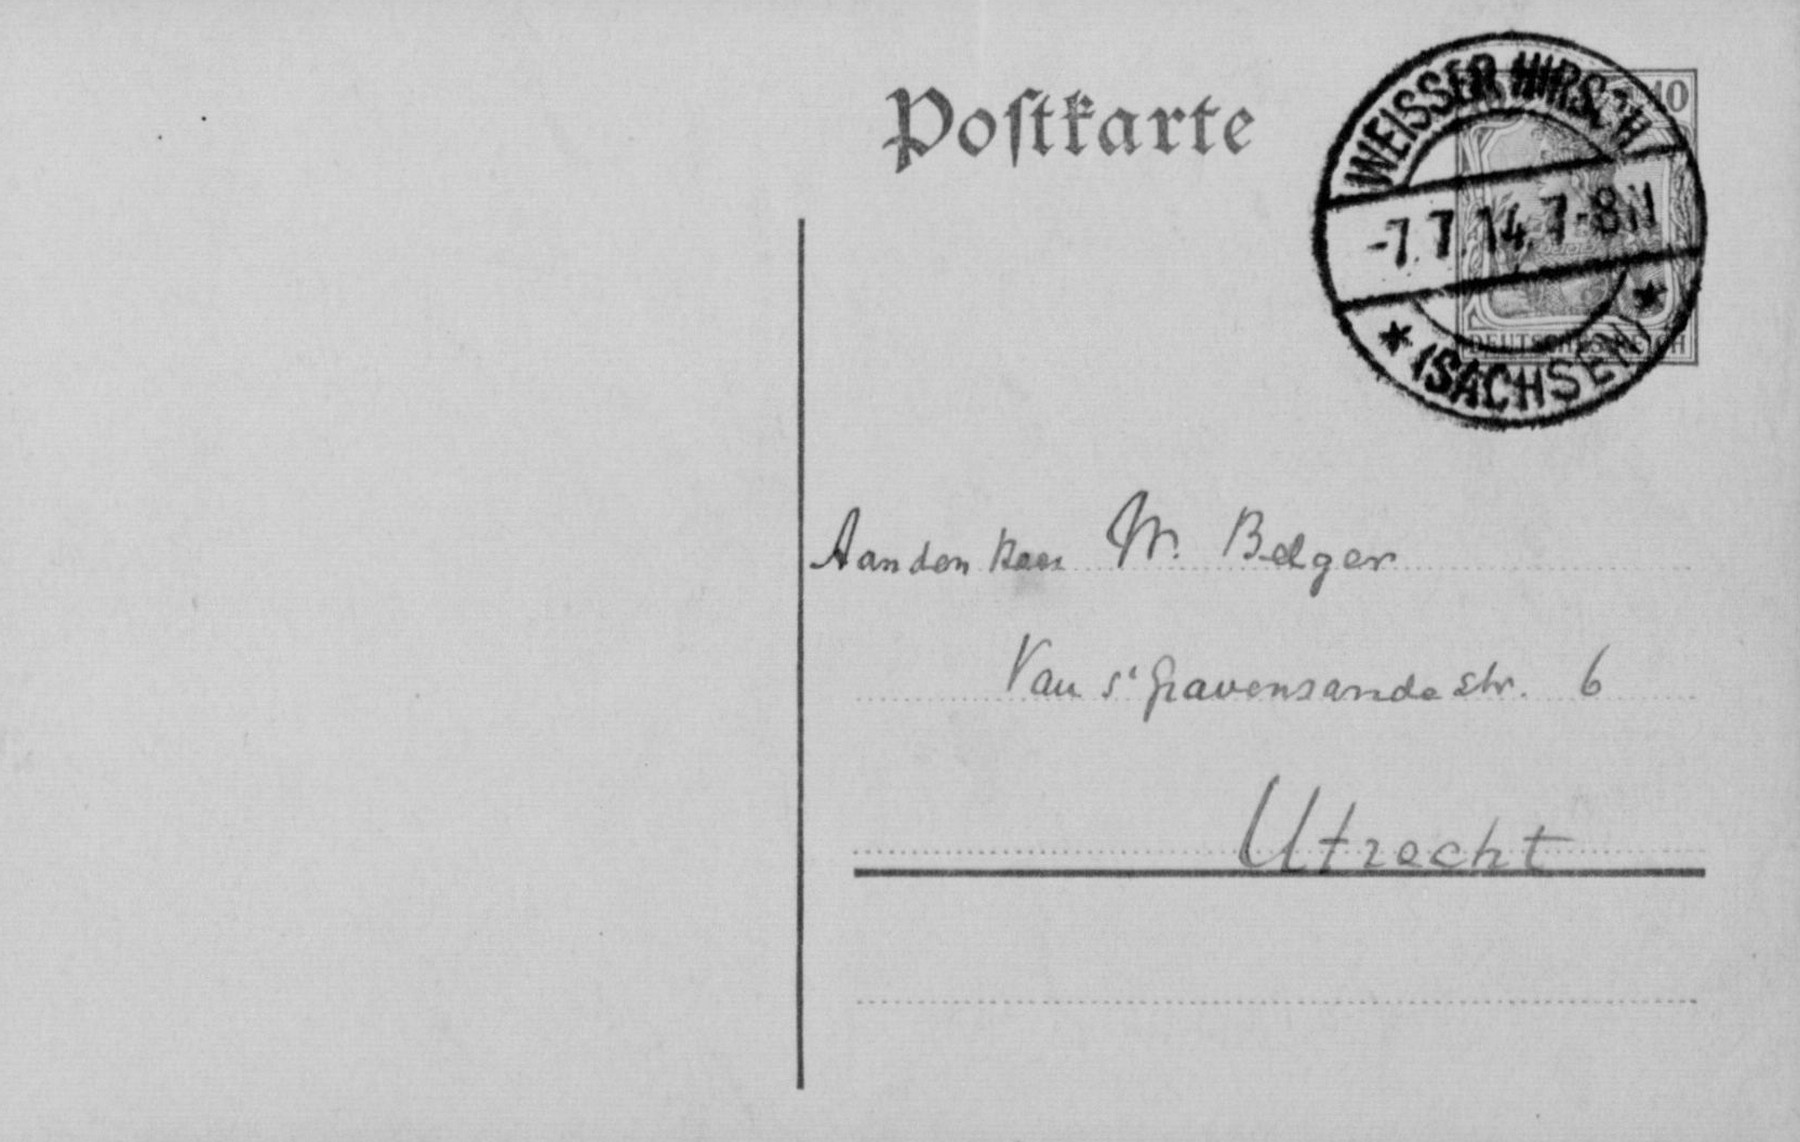 Postkarte
10
WEISSER HIRSCH
-7.7.14.7-8N
* (SACHSEN) *
DEUTSCHES REICH
Aan den Heer W. Belger
Van s' Gravensande str. 6
Utrecht